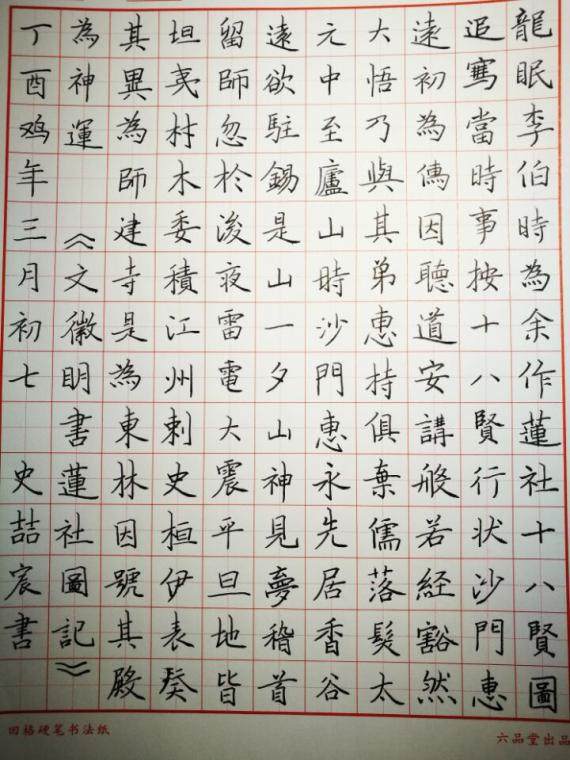 龍眠李伯時為余作蓮社十八賢圖
追寫當時事按十八賢行状沙門惠
遠初為儒因聽道安講般若経豁然
大悟乃與其弟惠持俱棄儒落髮太
元中至廬山時沙門惠永先居香谷
遠欲駐錫是山一夕山神見夢稽首
留師忽於浚夜雷電大震平旦地皆
坦夷村木委積江州刺史桓伊表癸
其異為師建寺是為東林因號其殿
為神運 《文徵明書蓮社圖記》
丁酉鸡年三月初七 史喆宸書
田格硬笔书法纸
六品堂出品